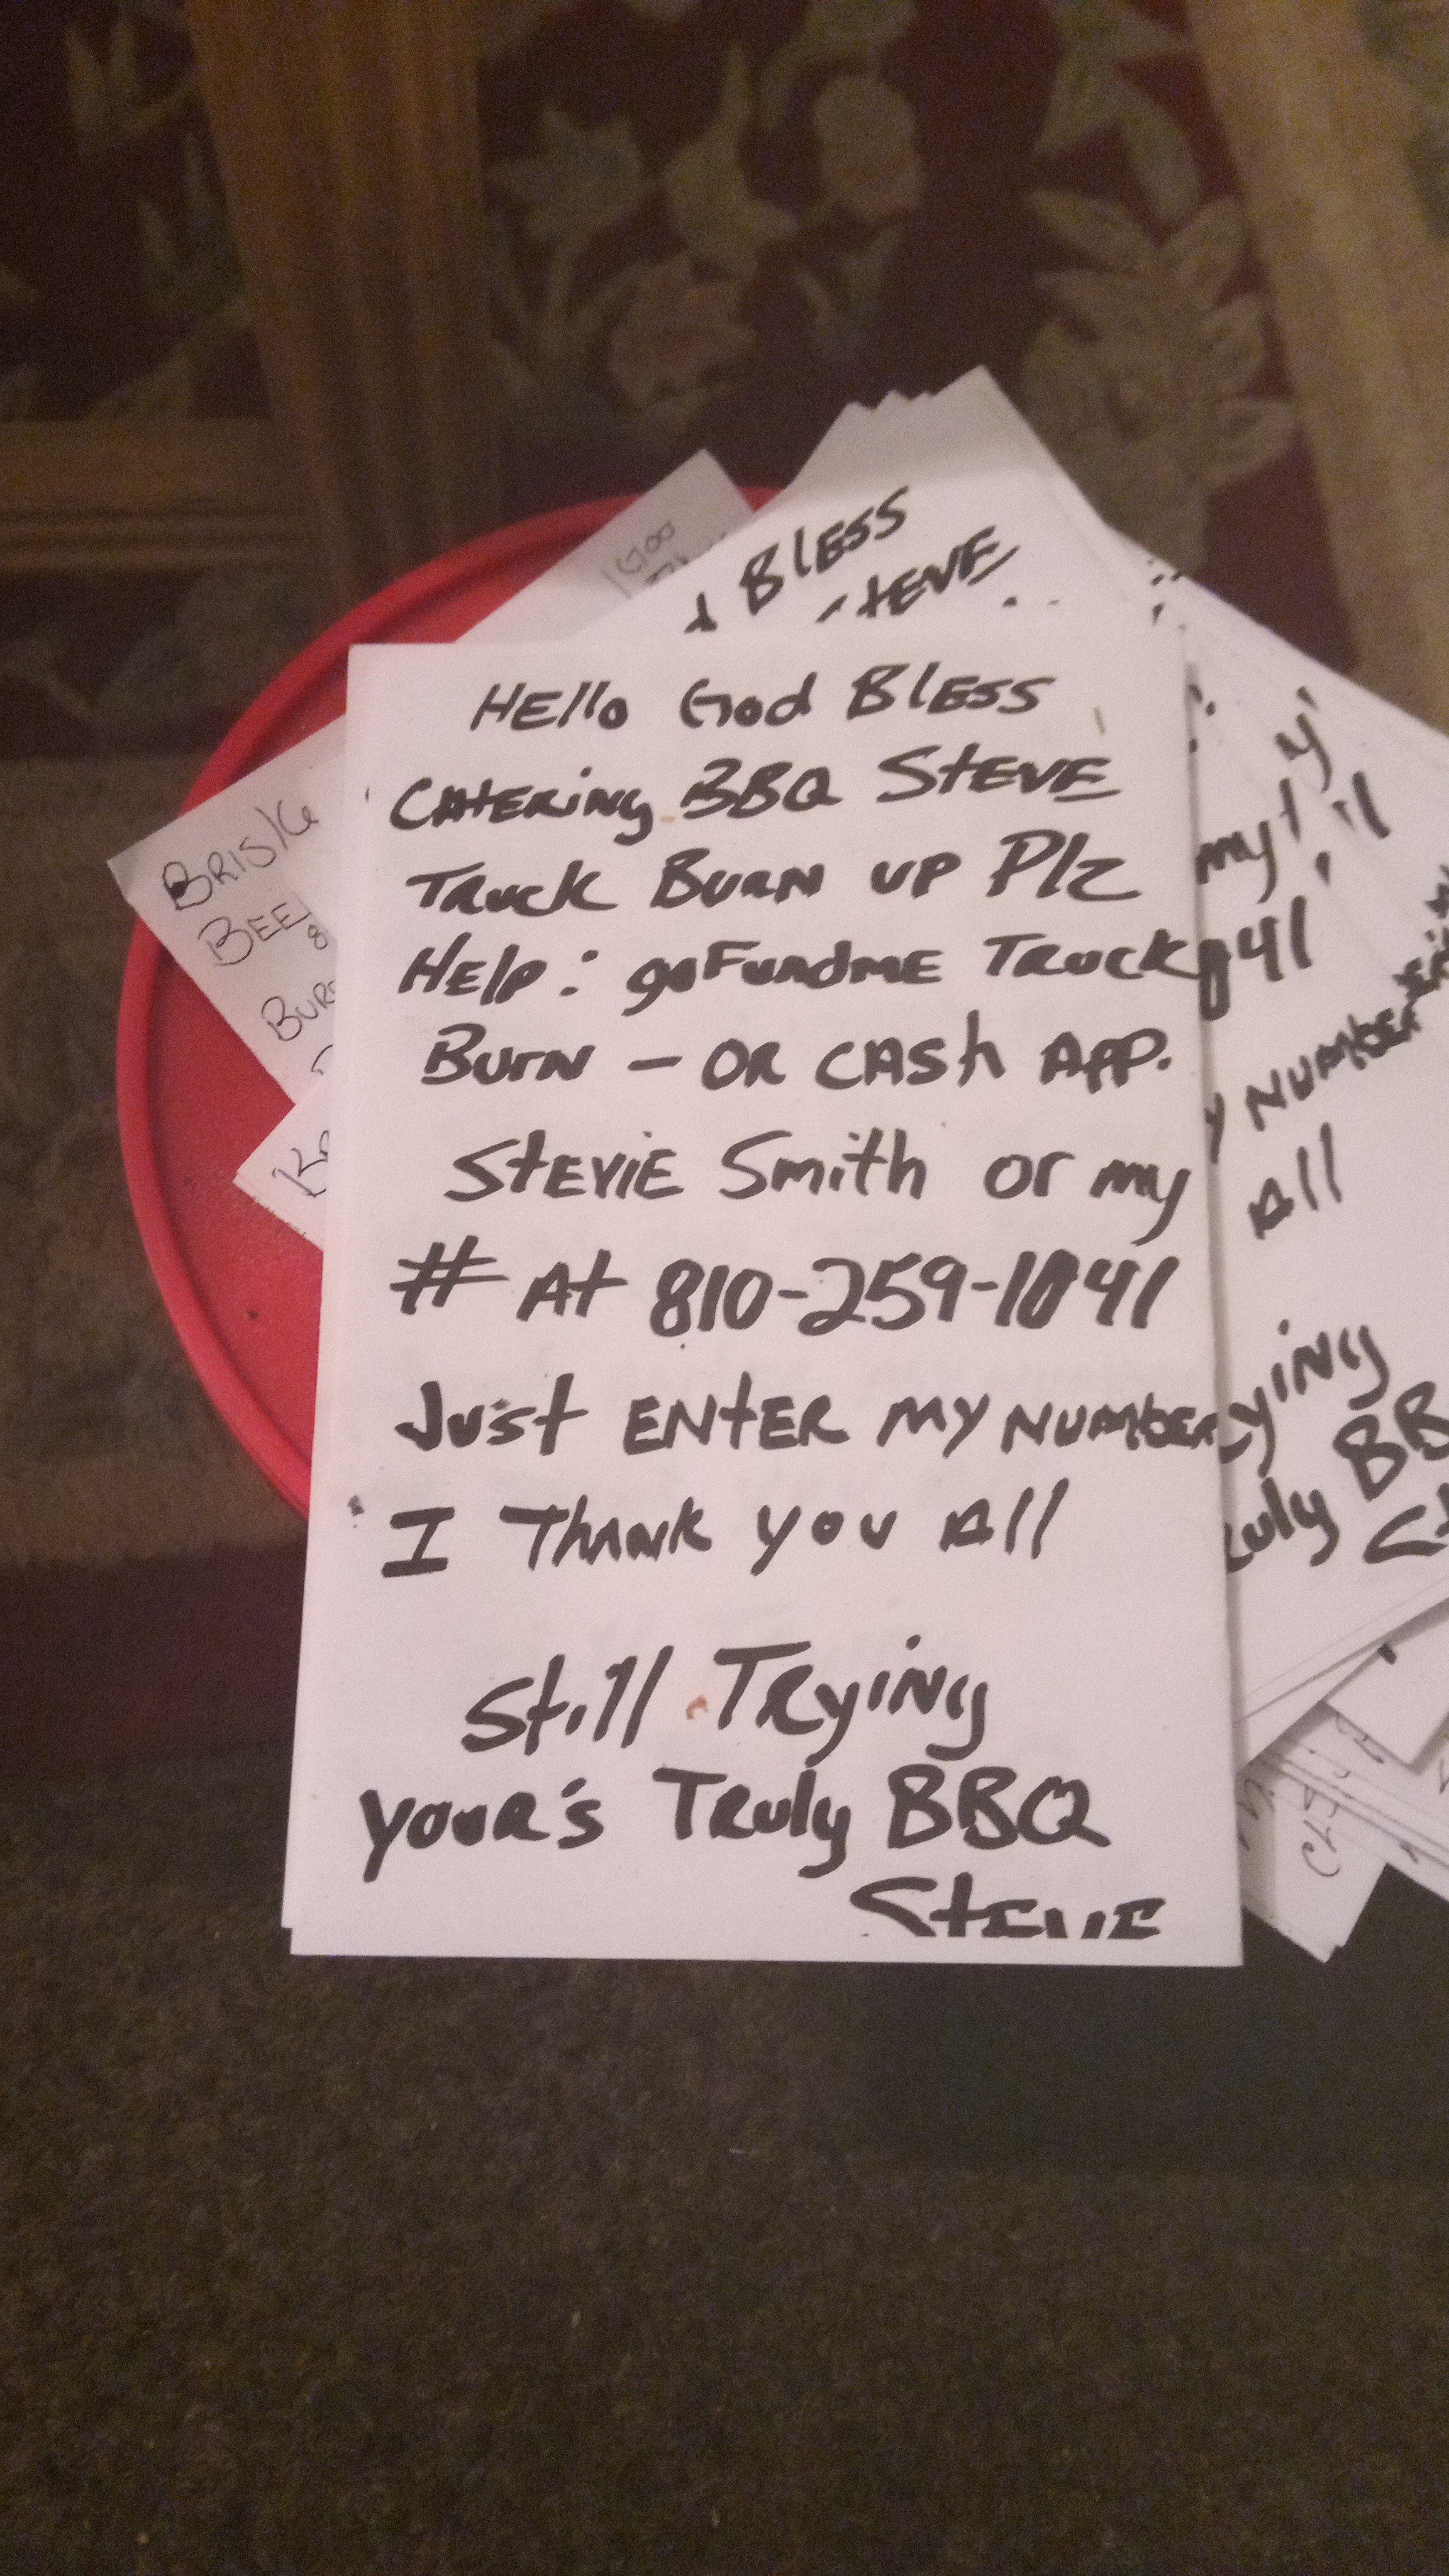 BLESS
STEVE
HEllo God BlESS
CAtERiNg BBQ StEVE
TRuck BuRN up Plz
HElp: goFundmE TRuck
BurN - OR CASh App.
StEViE Smith or my
# At 810-259-1041
Just ENtER my NumbER
I ThANk you All
Still TRyiNg
youR's TRuly BBQ
StEVE
BEE
my
041
NumbER
All
yiNg
uly BB